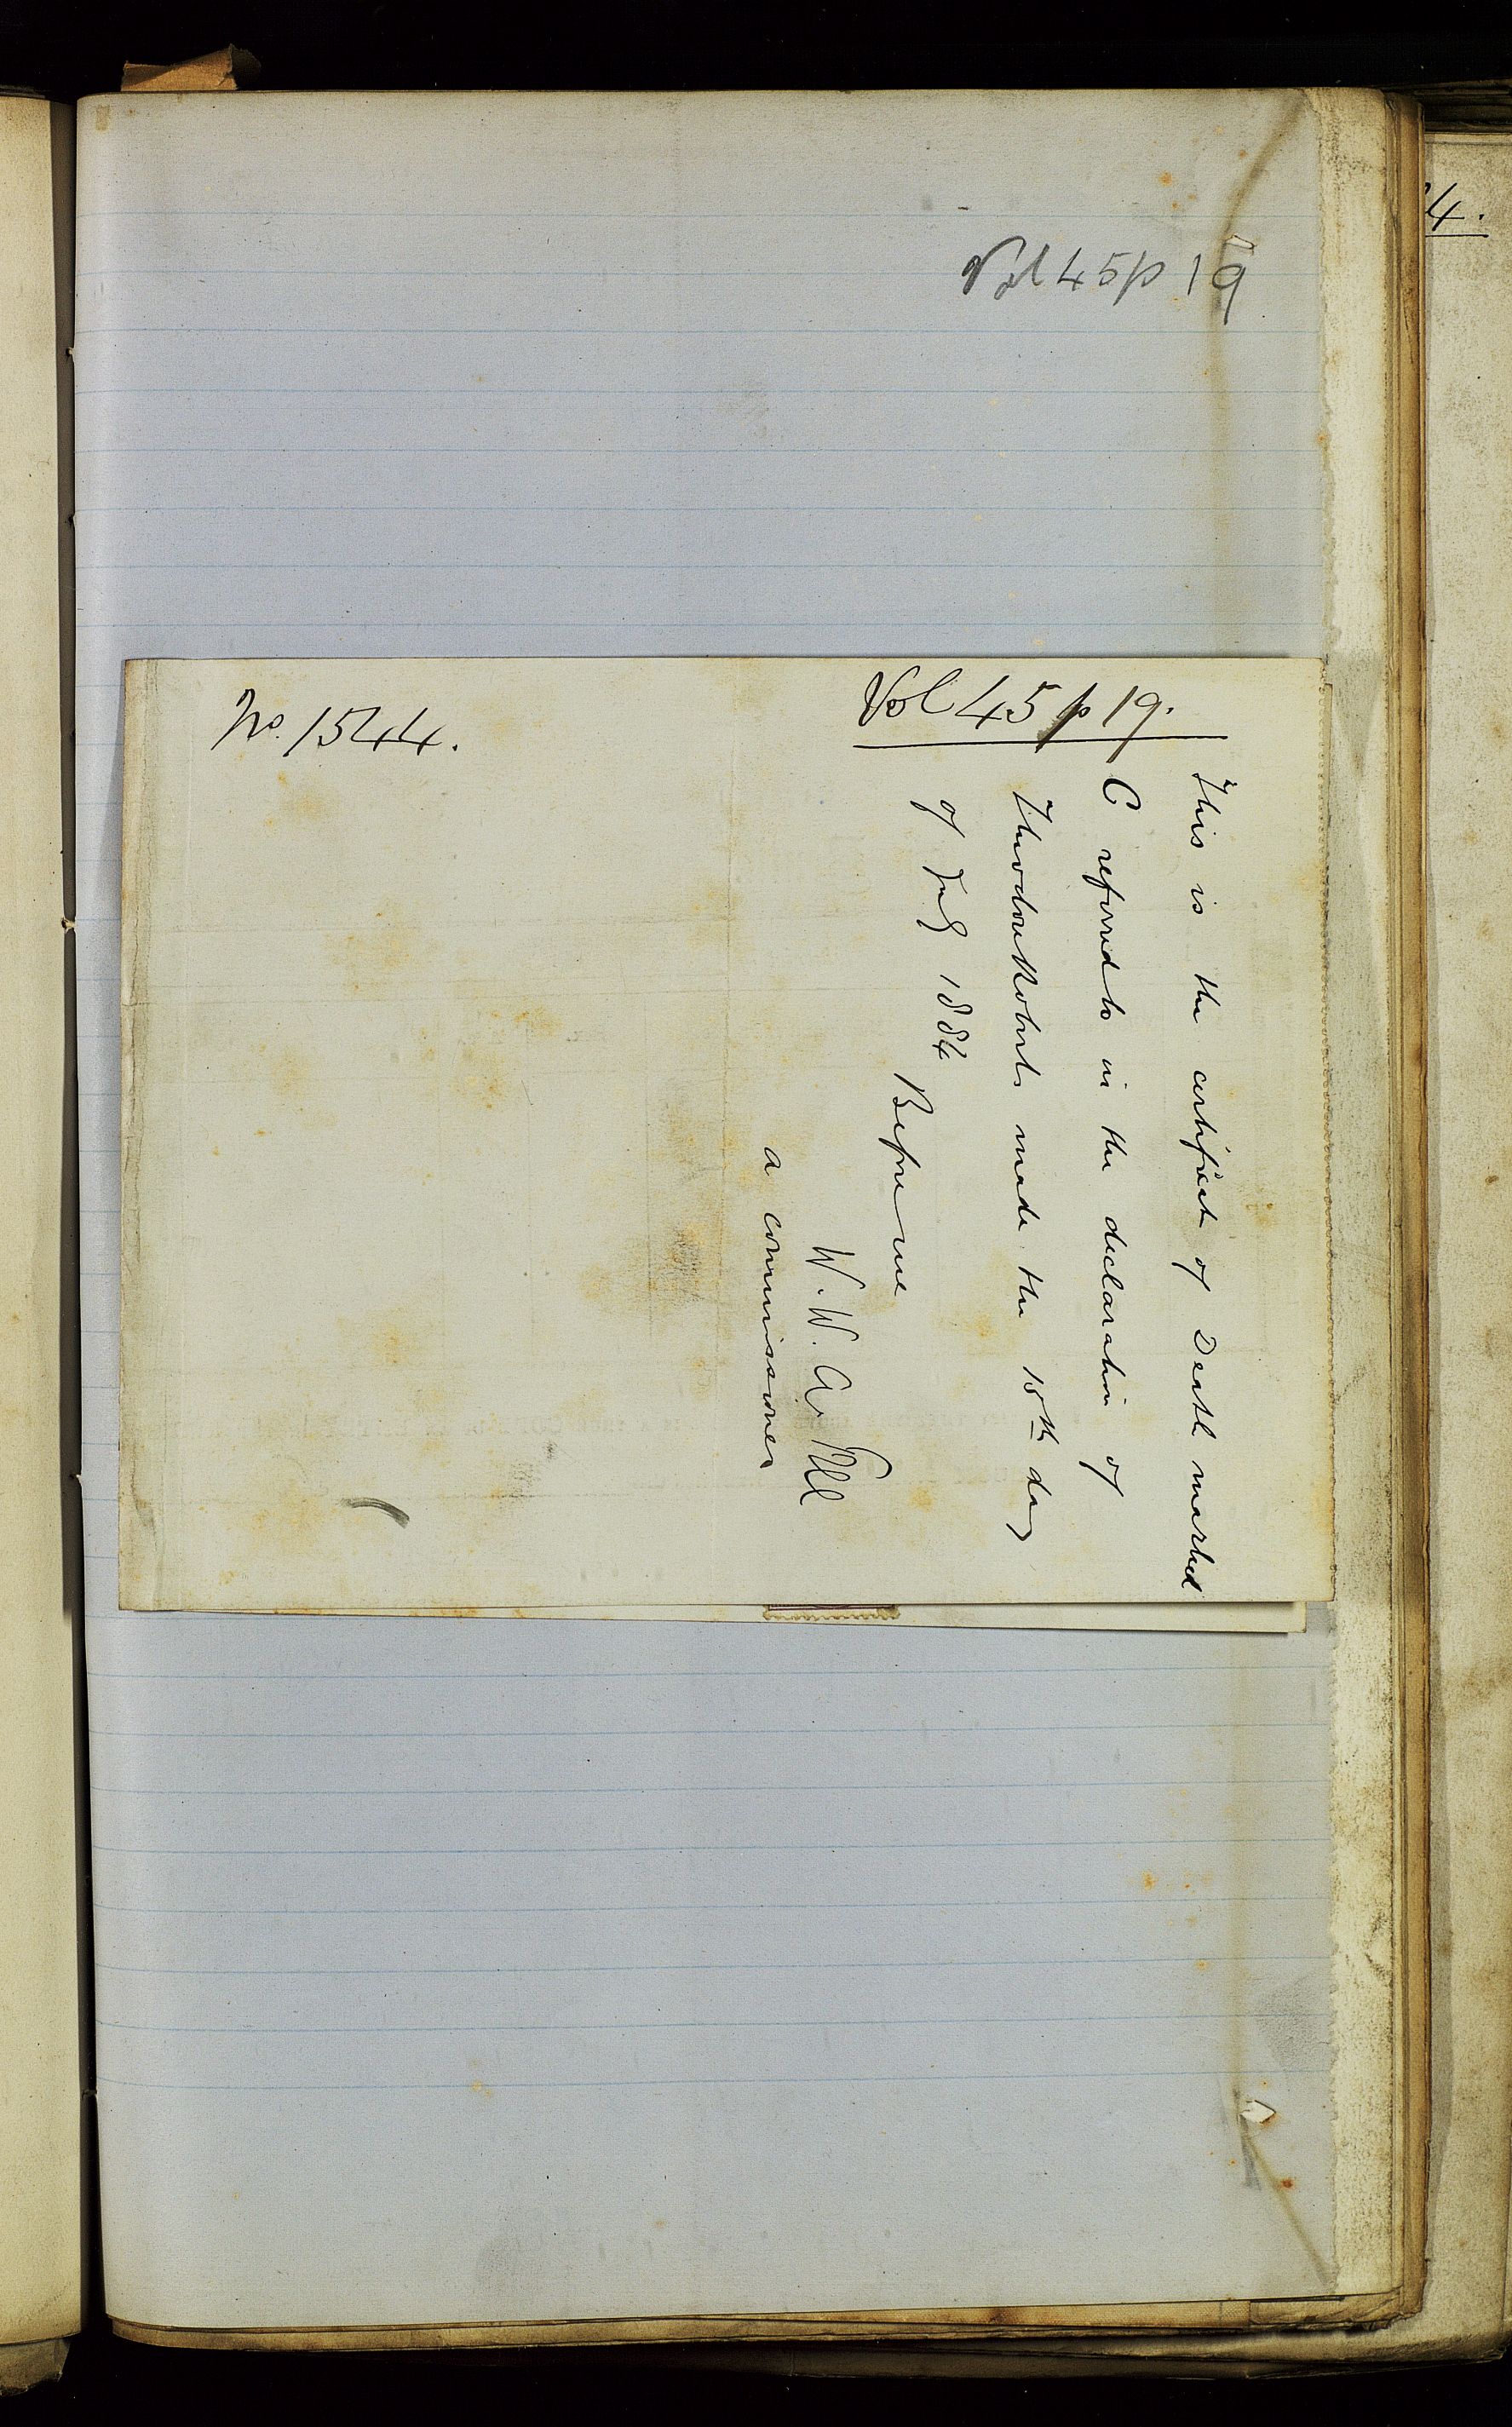 Vol 45 p 19
Vol 45 p 19.
No. 1544.
This is the certificate of Death marked
C referred to in the declaration of
Theodore Roberts made the 18th day
of July 1884
Before me
W. W. A.
a commissioner
4.